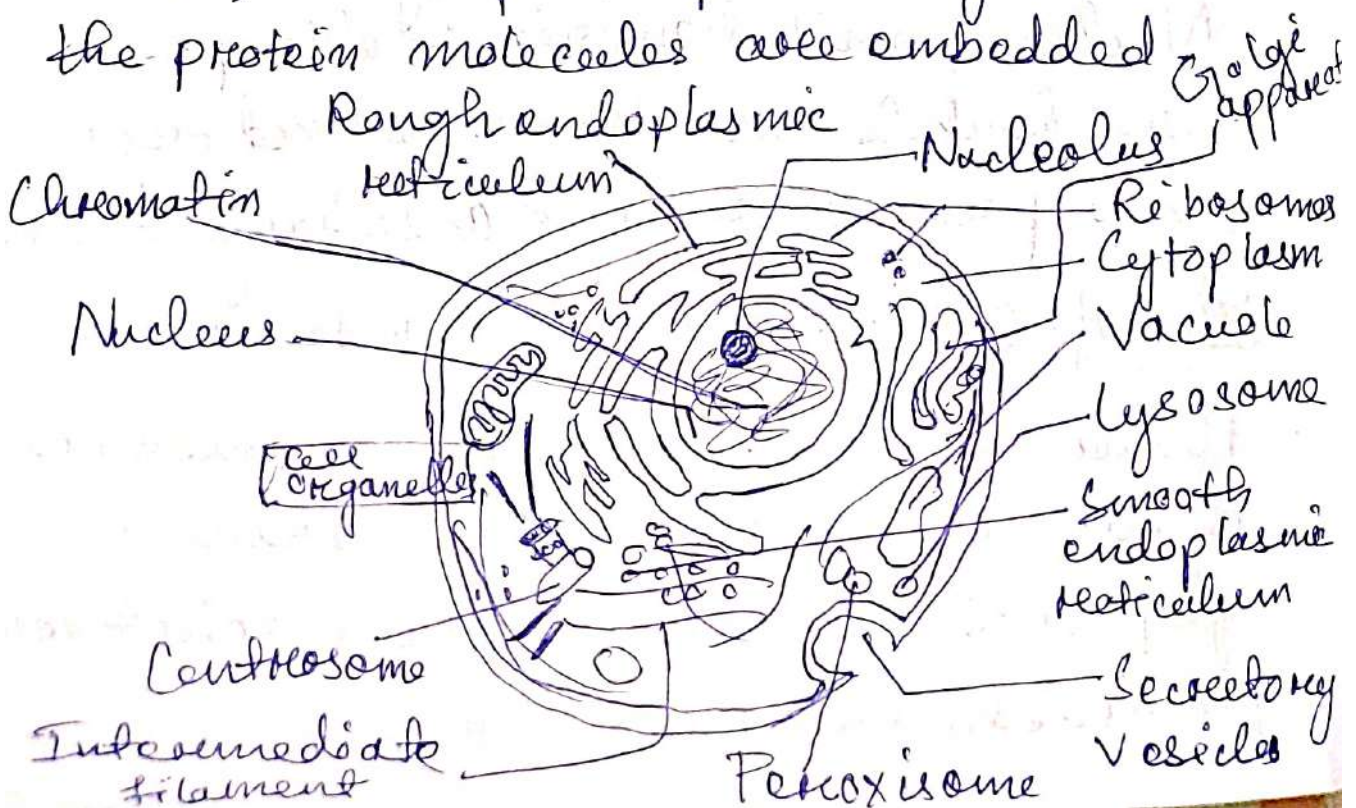 the protein molecules are embedded
Golgi
apparat
Rough endoplasmic
reticulum
Nucleolus
Chromatin
Ribosomes
Cytoplasm
Nucleus
Vacuole
Lysosome
Cell
organelles
Smooth
endoplasmic
reticulum
Centrosome
Secretory
vesicles
Intermediate
filament
Peroxisome